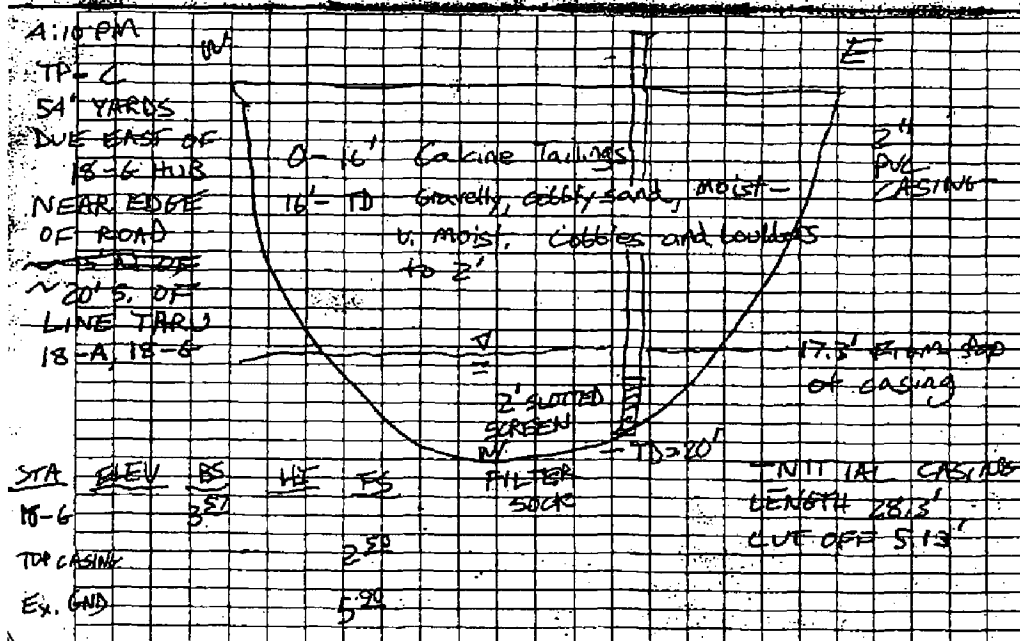 4:10 PM
TP-C
54' YARDS
DUE EAST OF
18-G HUB
NEAR EDGE
OF ROAD
~20' S. OF
LINE THRU
18-A, 18-G
W
E
0-16' Calcine Tailings
16'-TD Gravelly, cobbly sand, moist-
v. moist. Cobbles and boulders
to 2'
2"
PVC
CASING
17.3' From top
of casing
2' SLOTTED
SCREEN
W/
FILTER
SOCK
TD=20'
INITIAL CASING
LENGTH 28.3'
CUT OFF 5.13'
STA ELEV BS HI FS
18-G 3.57
TOP CASING 2.50
Ex. GND 5.90